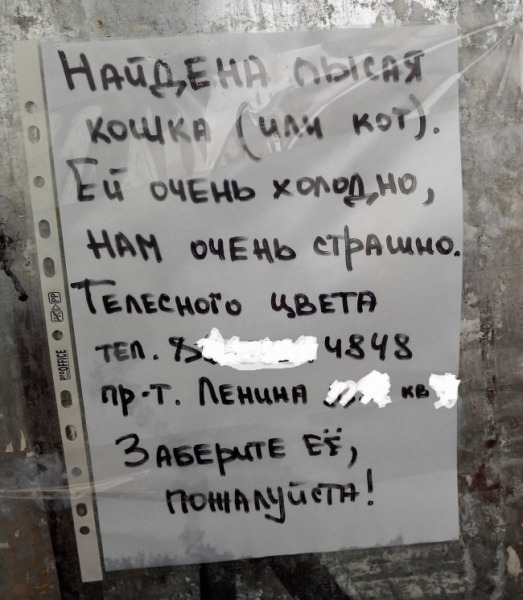 НАЙДЕНА ЛЫСАЯ
КОШКА (ИЛИ КОТ).
ЕЙ ОЧЕНЬ ХОЛОДНО,
НАМ ОЧЕНЬ СТРАШНО.
ТЕЛЕСНОГО ЦВЕТА
ТЕЛ. 4848
ПР-Т. ЛЕНИНА КВ
ЗАБЕРИТЕ ЕЁ,
ПОЖАЛУЙСТА!
OFFICE
PP